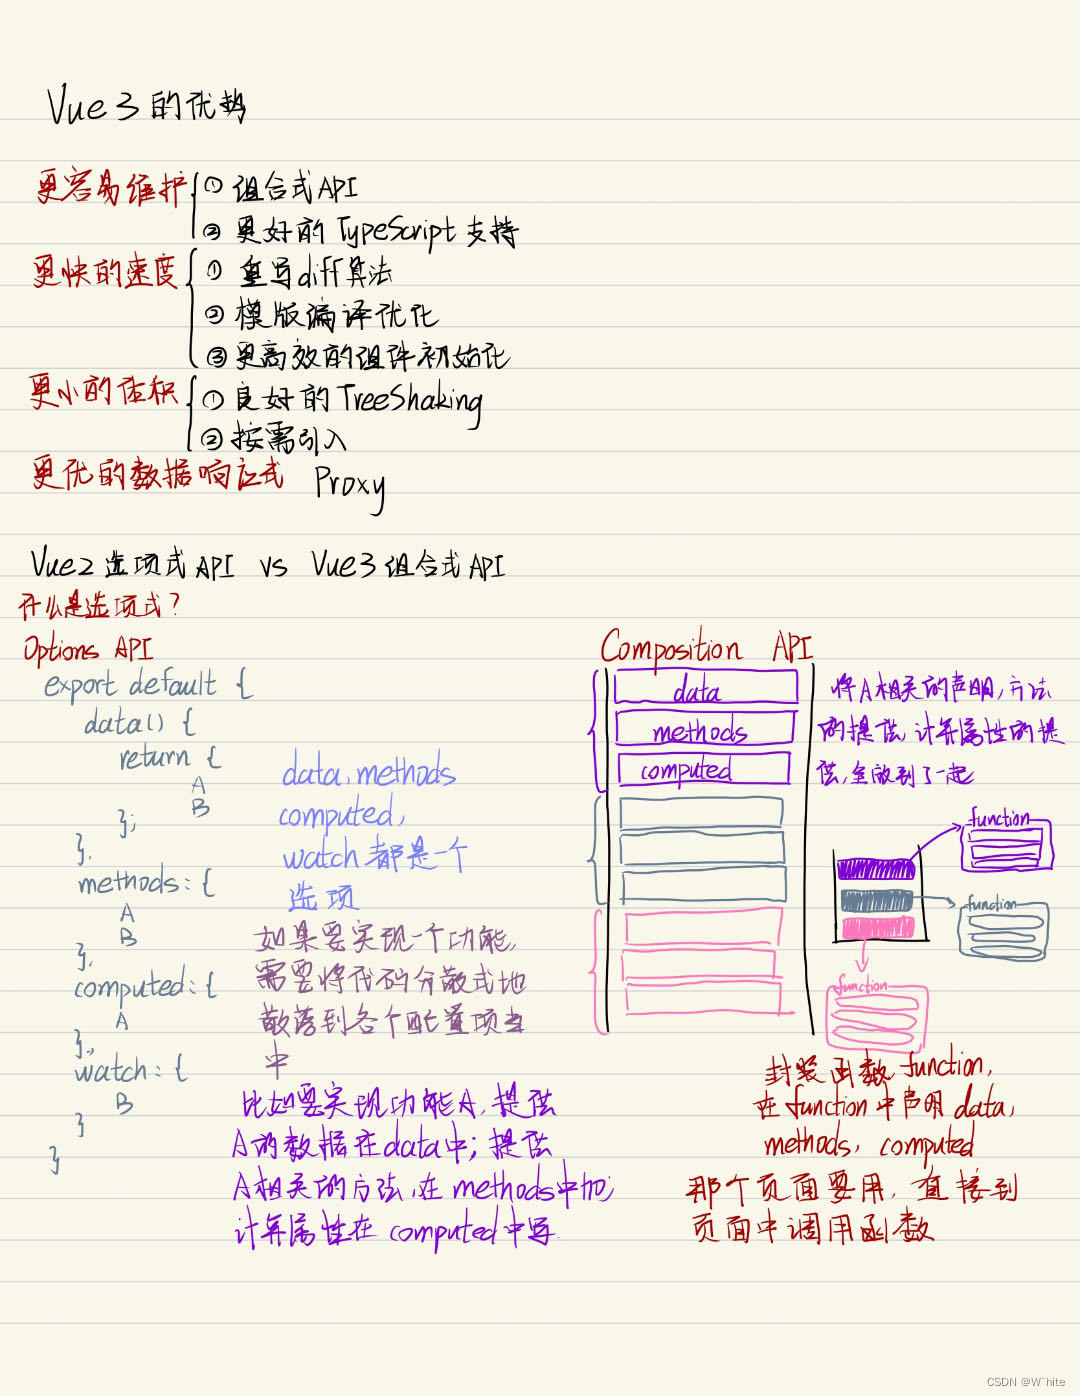 Vue3的优势
更容易维护
① 组合式API
② 更好的TypeScript支持
更快的速度
① 重写diff算法
② 模版编译优化
③ 更高效的组件初始化
更小的体积
① 良好的TreeShaking
② 按需引入
更优的数据响应式 Proxy
Vue2选项式API vs Vue3组合式API
什么是选项式?
Options API
export default {
data() {
return {
A
B
};
},
methods: {
A
B
},
computed: {
A
},
watch: {
B
}
}
data, methods
computed,
watch 都是一个
选项
如果要实现一个功能,
需要将代码分散式地
散落到各个配置项当
中
比如要实现功能A, 提供
A的数据在data中; 提供
A相关的方法, 在methods中加;
计算属性在 computed中写
Composition API
data
methods
computed
将A相关的声明, 方法
的提供, 计算属性的提
供, 全放到了一起
function
function
function
封装函数 function,
在function中声明data,
methods, computed
那个页面要用, 直接到
页面中调用函数
CSDN @W^hite